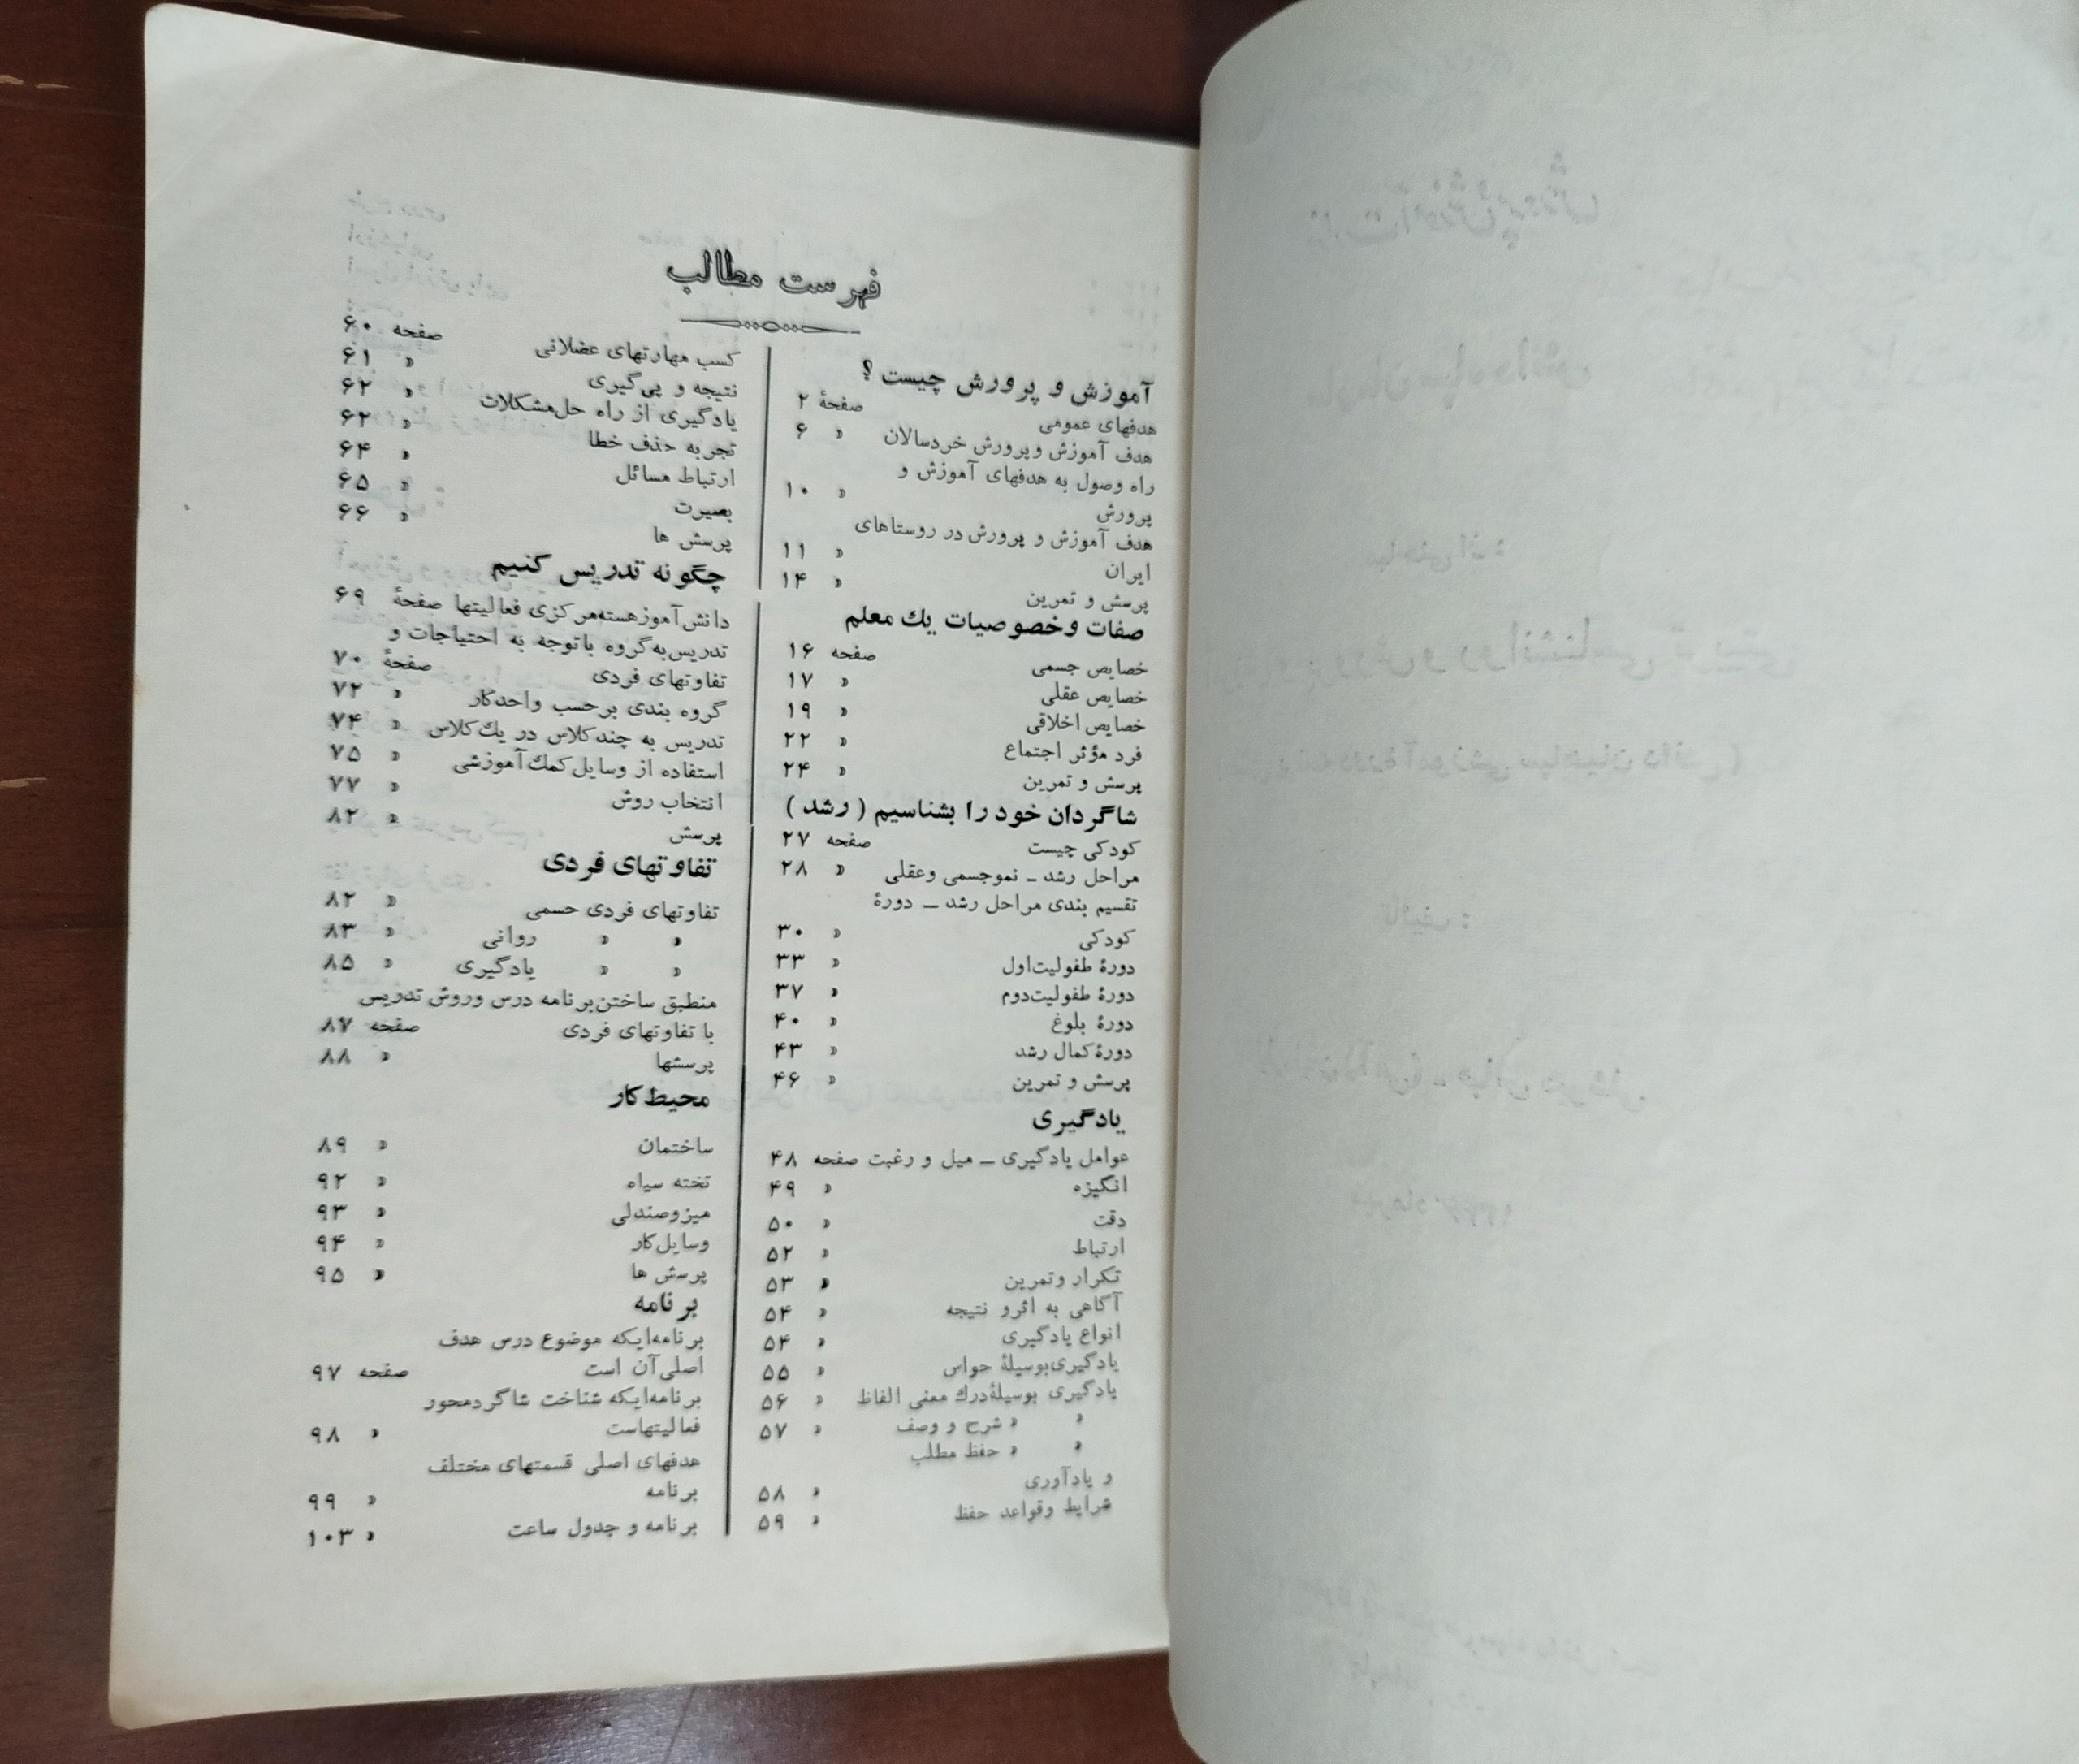 فهرست مطالب
آموزش و پرورش چیست ؟
هدفهای عمومی صفحهٔ ۲
هدف آموزش وپرورش خردسالان » ۶
راه وصول به هدفهای آموزش و
پرورش » ۱۰
هدف آموزش و پرورش در روستاهای
ایران » ۱۱
پرسش و تمرین » ۱۴
صفات وخصوصیات یك معلم
خصایص جسمی صفحه ۱۶
خصایص عقلی » ۱۷
خصایص اخلاقی » ۱۹
فرد مؤثر اجتماع » ۲۲
پرسش و تمرین » ۲۴
شاگردان خود را بشناسیم ( رشد )
کودکی چیست صفحه ۲۷
مراحل رشد ـ نموجسمی وعقلی » ۲۸
تقسیم بندی مراحل رشد ـ دورهٔ
کودکی » ۳۰
دورهٔ طفولیت‌اول » ۳۳
دورهٔ طفولیت‌دوم » ۳۷
دورهٔ بلوغ » ۴۰
دورهٔ‌کمال رشد » ۴۳
پرسش و تمرین » ۴۶
یادگیری
عوامل یادگیری ـ میل و رغبت صفحه ۴۸
انگیزه » ۴۹
دقت » ۵۰
ارتباط » ۵۲
تکرار وتمرین » ۵۳
آگاهی به اثرو نتیجه » ۵۴
انواع یادگیری » ۵۴
یادگیری‌بوسیلهٔ حواس » ۵۵
یادگیری بوسیلهٔ‌درك معنی الفاظ » ۵۶
» » شرح و وصف » ۵۷
» » حفظ مطلب
و یادآوری » ۵۸
شرایط وقواعد حفظ » ۵۹
کسب مهارتهای عضلانی صفحه ۶۰
نتیجه و پی‌گیری » ۶۱
یادگیری از راه حل‌مشکلات » ۶۲
تجربه حذف خطا » ۶۲
ارتباط مسائل » ۶۴
بصیرت » ۶۵
پرسش ها » ۶۶
چگونه تدریس کنیم
دانش‌آموزهسته‌مرکزی فعالیتها صفحهٔ ۶۹
تدریس‌به‌گروه باتوجه به احتیاجات و
تفاوتهای فردی صفحهٔ ۷۰
گروه بندی برحسب واحدکار » ۷۲
تدریس به چندکلاس در یك‌کلاس » ۷۴
استفاده از وسایل‌کمك‌آموزشی » ۷۵
انتخاب روش » ۷۷
پرسش » ۸۲
تفاوتهای فردی
تفاوتهای فردی حسمی » ۸۲
» » روانی » ۸۳
» » یادگیری » ۸۵
منطبق ساختن‌برنامه درس وروش تدریس
با تفاوتهای فردی صفحه ۸۷
پرسشها » ۸۸
محیط‌کار
ساختمان » ۸۹
تخته سیاه » ۹۲
میزوصندلی » ۹۳
وسایل‌کار » ۹۴
پرسش ها » ۹۵
برنامه
برنامه‌ایکه موضوع درس هدف
اصلی‌آن است صفحه ۹۷
برنامه‌ایکه شناخت شاگردمحور
فعالیتهاست » ۹۸
هدفهای اصلی قسمتهای مختلف
برنامه » ۹۹
برنامه و جدول ساعت » ۱۰۳